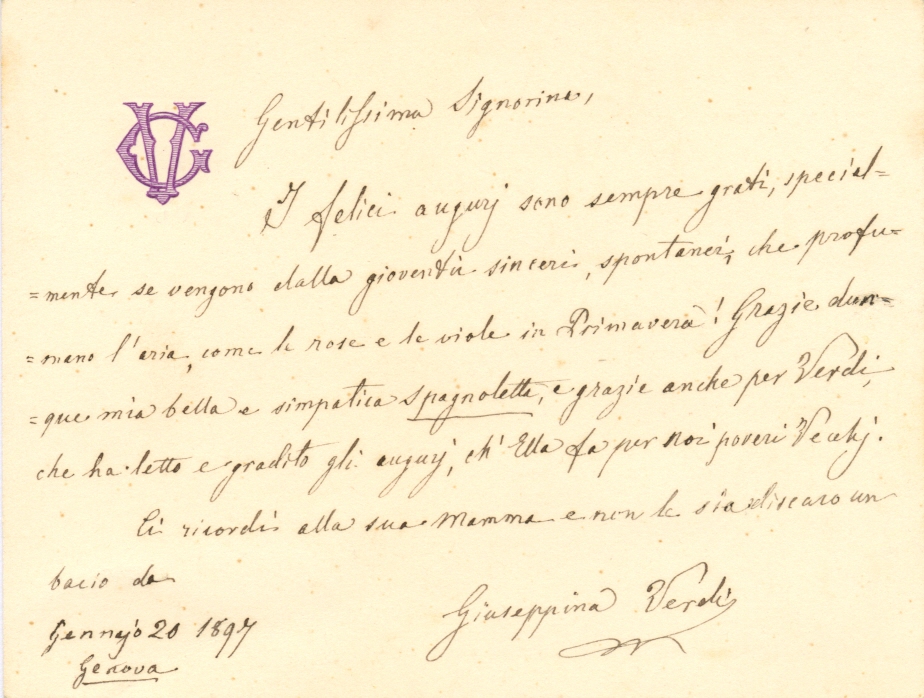 GV
Gentilissima Signorina,
I felici augurj sono sempre grati, special=
=mente se vengono dalla gioventù sinceri, spontanei, che profu=
=mano l'aria, come le rose e le viole in Primavera! Grazie dun=
=que mia bella e simpatica spagnoletta, e grazie anche per Verdi,
che ha letto e gradito gli augurj, ch' Ella fa per noi poveri Vecchj.
Ci ricordi alla sua Mamma e non le sia discaro un
bacio da
Giuseppina Verdi
Gennajo 20 1897
Genova